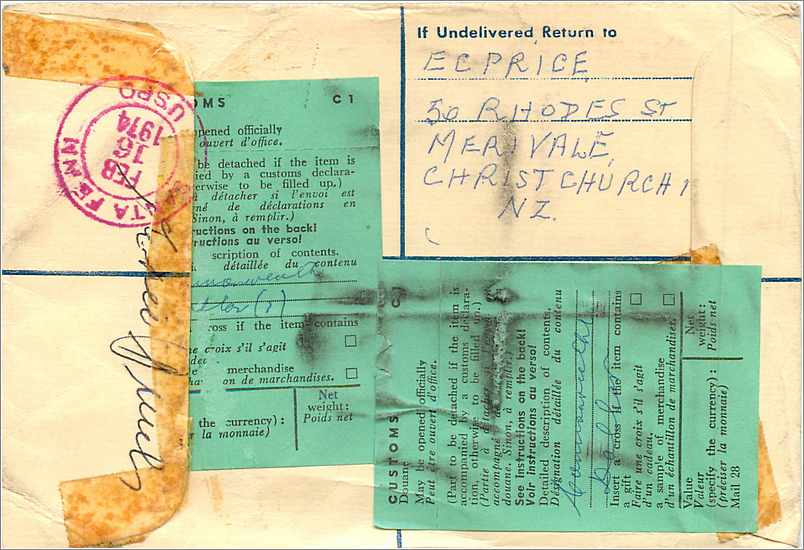 If Undelivered Return to
E C PRICE
50 RHODES ST
MERIVALE,
CHRISTCHURCH 1
NZ.
TA FE NM
FEB
16
1974
USPO
OMS C 1
opened officially
ouvert d'office.
be detached if the item is
ied by a customs declara-
erwise to be filled up.)
détacher si l'envoi est
né de déclarations en
Sinon, à remplir.)
ructions on the back!
tructions au verso!
scription of contents.
détaillée du contenu
ross if the item contains
ne croix s'il s'agit
de:
merchandise
on de marchandises.
Net
weight:
Poids net
the currency):
er la monnaie)
CUSTOMS C 1
Douane
May be opened officially
Peut être ouvert d'office.
(Part to be detached if the item is
accompanied by a customs declara-
tion, otherwise to be filled up.)
(Partie à détacher
accompagné de
douane. Sinon, à remplir.)
See Instructions on the back!
Voir Instructions au verso!
Detailed description of contents.
Désignation détaillée du contenu
Commonwealth
Insert a cross if the item contains
a gift
Faire une croix s'il s'agit
d'un cadeau.
a sample of merchandise
d'un échantillon de marchandises.
Value
Valeur
(specify the currency):
(préciser la monnaie)
Net
weight:
Poids net
Mail 28